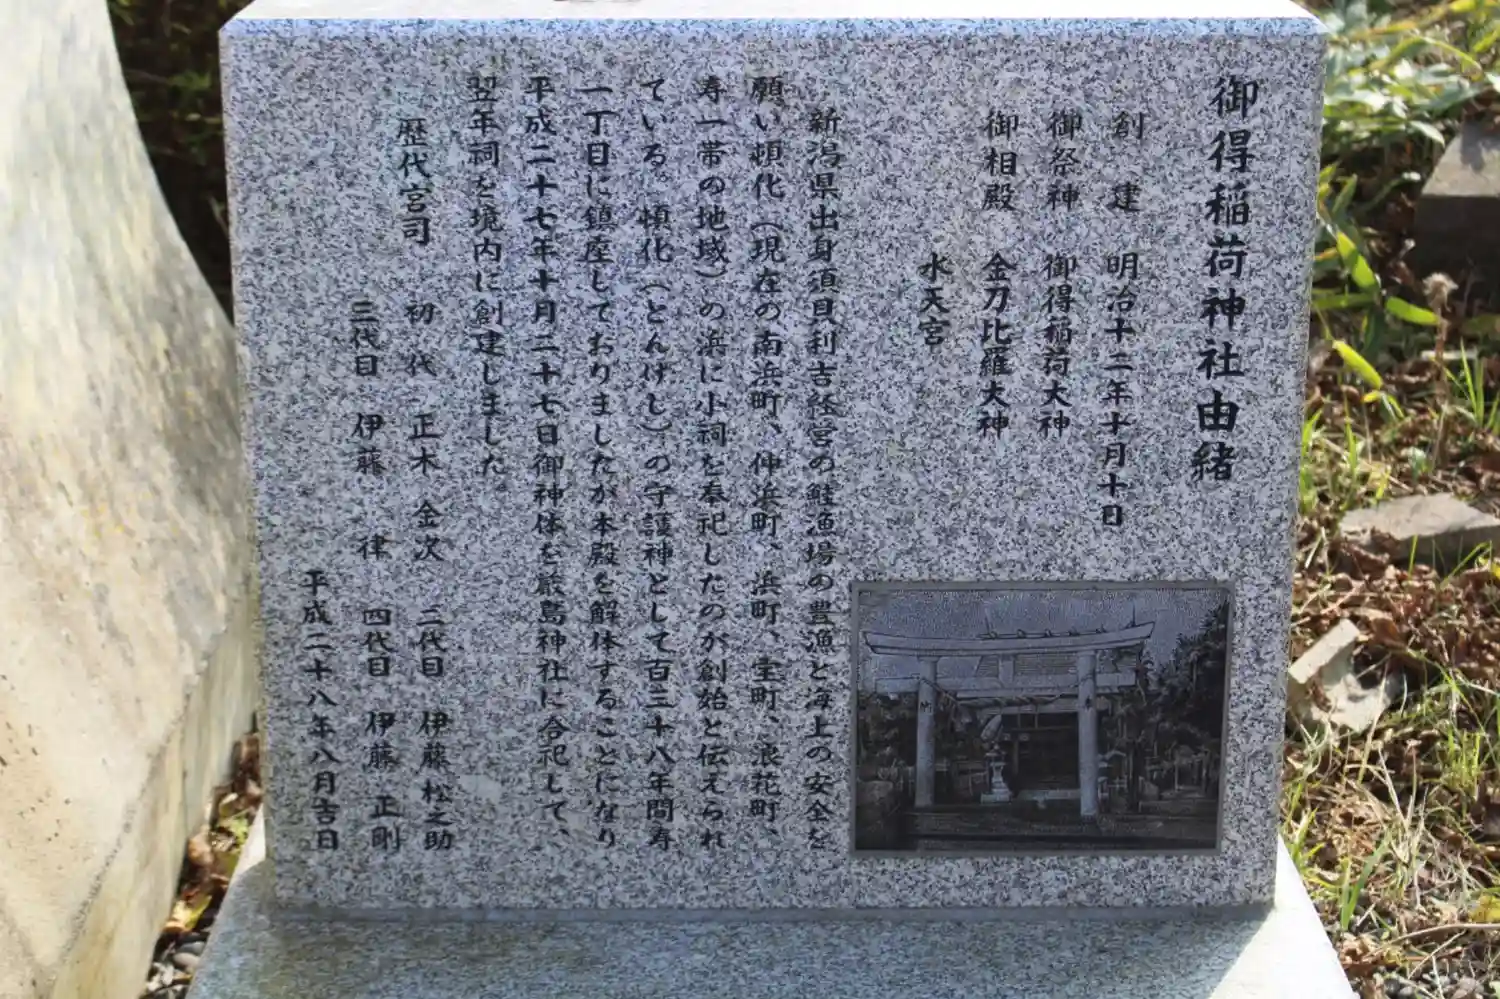 御得稲荷神社由緒
創建 明治十二年十月十日
御祭神 御得稲荷大神
御相殿 金刀比羅大神
水天宮
新潟県出身須貝利吉経営の鮭漁場の豊漁と海上の安全を
願い頓化(現在の南浜町、仲浜町、浜町、宝町、浪花町、
寿一帯の地域)の浜に小祠を奉祀したのが創始と伝えられ
ている。頓化(とんけし)の守護神として百三十八年間寿
一丁目に鎮座しておりましたが本殿を解体することになり
平成二十七年十月二十七日御神体を厳島神社に合祀して、
翌年祠を境内に創建しました。
歴代宮司 初代 正木 金次 二代目 伊藤松之助
三代目 伊藤 律 四代目 伊藤 正剛
平成二十八年八月吉日